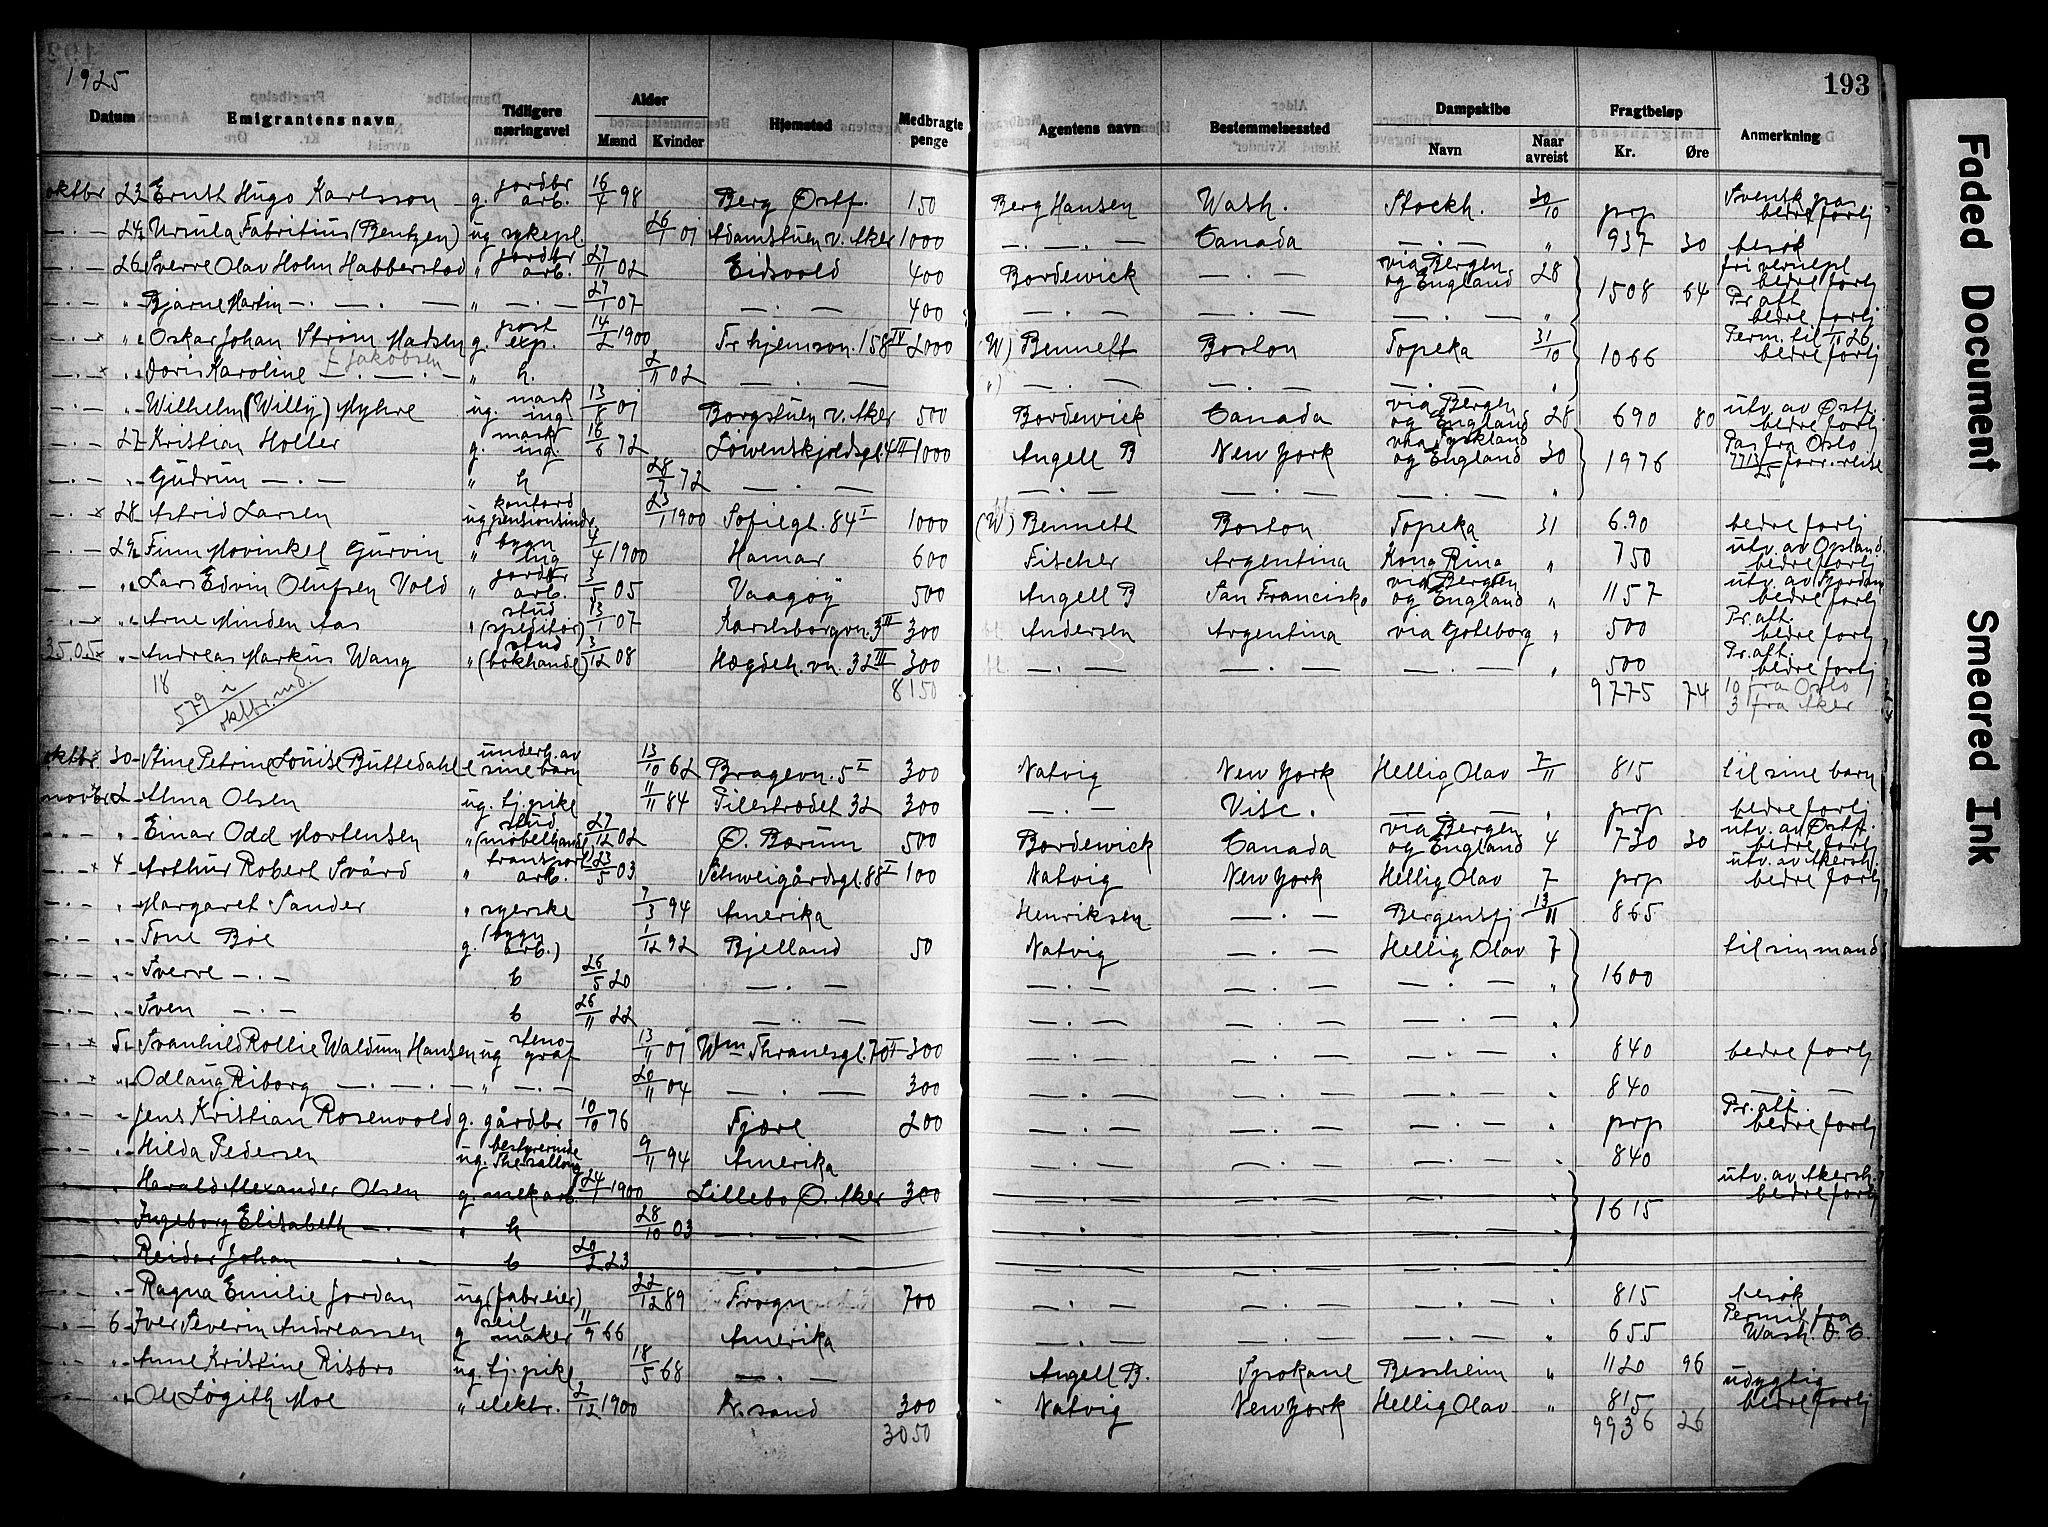 1925
193
Datum Emigrantens navn Tidligere næringsvei Alder Mænd Kvinder Hjemsted Medbragte penge Agentens navn Bestemmelsessted Dampskibe Navn Naar avreist Fragtbeløp Kr. Øre Anmerkning
oktbr 23 Ernst Hugo Karlsson g. jordbr arb. 16/4 98 Berg Østf. 150 Berg Hansen Wash. Stockh. 30/10 prp Svensk pas bedre forhj
- . - 24 Ursula Fabritius (Bentzen) ug sykepl 26/1 01 Adamstuen v. Aker 1000 - . - . - Canada - . - " 937 30 besøk
- . - 26 Sverre Olav Holm Habberstad " jordbr arb. 27/11 02 Eidsvold 400 Bordewick - . - via Bergen og England 28 1508 64 fri vernepl bedre forhj
- . - " Bjarne Martin - . - . - " - . - 27/1 07 - . - 400 - . - . - - . - - . - " Pr. att. bedre forhj
- . - x " Oskar Johan Strøm Madsen g. post exp. 14/2 1900 Fr. hjemson. 158 IV 2000 (W) Bennett Boston Topeka 31/10 1066 Perm. til 1/11 26 bedre forhj
- . - x " Doris Karoline - . - . - f Jakobsen " h. 2/11 02 - . - - . - . - - . - - . - "
- . - " Wilhelm (Willy) Myhre ug. mask ing 13/8 01 Borgstuen v. Aker 500 Bordewick Canada via Bergen og England 28 690 80 utv. av Østf. bedre forhj
- . - 27 Kristian Holler g. mask ing. 16/6 72 Løwenskjoldsgt. 4 II 1000 Angell B New York via Tyskland og England 30 1976 Pas fra Oslo 7713/25 forr. reise
- . - " Gudrun - . - " h 28/7 72 - . - - . - . - - . - - . - "
- . - x 28 Astrid Larsen ug kontord pensionsind. 23/1 1900 Sofiegt. 84 I 1000 (W) Bennett Boston Topeka 31 690 bedre forhj
- . - 29 Finn Movinkel Gurvin " bygn ing 4/4 1900 Hamar 600 Fischer Argentina Kong Ring " 750 utv. av Opland. bedre forhj
- " Lars Edvin Olufsen Vold " jordbr arb. 3/5 05 Vaagøy 500 Angell B San Francisko via Bergen og England " 1157 utv. av Fjordane bedre forhj
- x " Arne Minden Aas " stud (speditør) 13/1 07 Karlsborgvn. 3 II 300 Andersen Argentina via Goteborg " 500 Pr. att. bedre forhj
35.05 x " Andreas Markus Wang " stud (bokhandel) 3/12 08 Hægdeh. vn. 32 III 300 - . - - . - - . - " 500 Pr. att. bedre forhj
18 8150 9775 74 10 fra Oslo
579 i oktbr. md. 3 fra Aker
oktbr x 30 Stine Petrine Louise Buttedahl underh. av sine barn 13/10 62 Bragevn. 5 I 300 Natvig New York Hellig Olav 7/11 815 til sine barn
novbr x 2 Alma Olsen ug. tj. pike 11/11 84 Pilestrædet 32 300 - . - Visc. - . - " prp bedre forhj
- . - " Einar Odd Mortensen " stud (møbelhandl 27/12 02 Ø. Bærum 500 Bordewick Canada via Bergen og England 4 730 30 utv. av Østf. bedre forhj
- . - x 4 Arthur Robert Svärd " transport arb. 23/5 03 Schweigårdsgt. 88 I 100 Natvig New York Hellig Olav 7 prp utv. av Akersh. bedre forhj
- . - " Margaret Sander " syerske 7/3 94 Amerika Henriksen - . - Bergensfj 13/11 865
- . - " Tone Bøe g. (bygn arb.) 1/12 92 Bjelland 50 Natvig - . - Hellig Olav 7 1600 til sin mand
- . - " Sverre - . - b 26/5 20 - . - - . - - . - - . - "
- . - " Sven - . - b 26/11 22 - . - - . - - . - - . - "
- . - x 5 Svanhild Rollie Waldum Hansen ug steno graf 13/11 01 Wm Thranesgt. 70 II 300 - . - - . - - . - " 840 bedre forhj
- . - x " Odlaug Riborg - . - . - " - . - 20/11 04 - . - 300 - . - - . - - . - " 840 - . -
- . - " Jens Kristian Rosenvold g. gårdbr 10/10 76 Fjære 200 - . - - . - - . - " prp Pr. att. bedre forhj
- . - " Hilda Pedersen ug. bestyrerinde The sallong 9/11 94 Amerika - . - - . - - . - " 840
- . - " Harald Alexander Olsen g mek arb. 24/1 1900 Lillebo Ø. Aker 300 - . - - . - - . - " 1615 utv. av Akersh. bedre forhj
- . - " Ingeborg Elisabeth - . - " h 28/10 03 - . - . - - . - - . - - . - "
- . - " Reidar Johan - . - b 20/2 23 - . - - . - - . - - . - "
- . - " Ragna Emilie Jordan ug (fabr. eier) 22/12 89 Frogn 700 - . - - . - - . - " 815 besøk
- . - 6 Iver Severin Andreassen g seil maker 11/9 66 Amerika - . - - . - - . - " 655 Permit fra Wash. D. C.
- . - " Anne Kristine Risbro ug. tj. pike 18/5 68 - . - Angell B. Spokane Bessheim " 1120 96
- . - " Ole Løgith Moe " elektr. 2/12 1900 Kr. sand 300 Natvig New York Hellig Olav " 815 udygtig bedre forhj
3050 9936 26
Faded Document
Smeared Ink